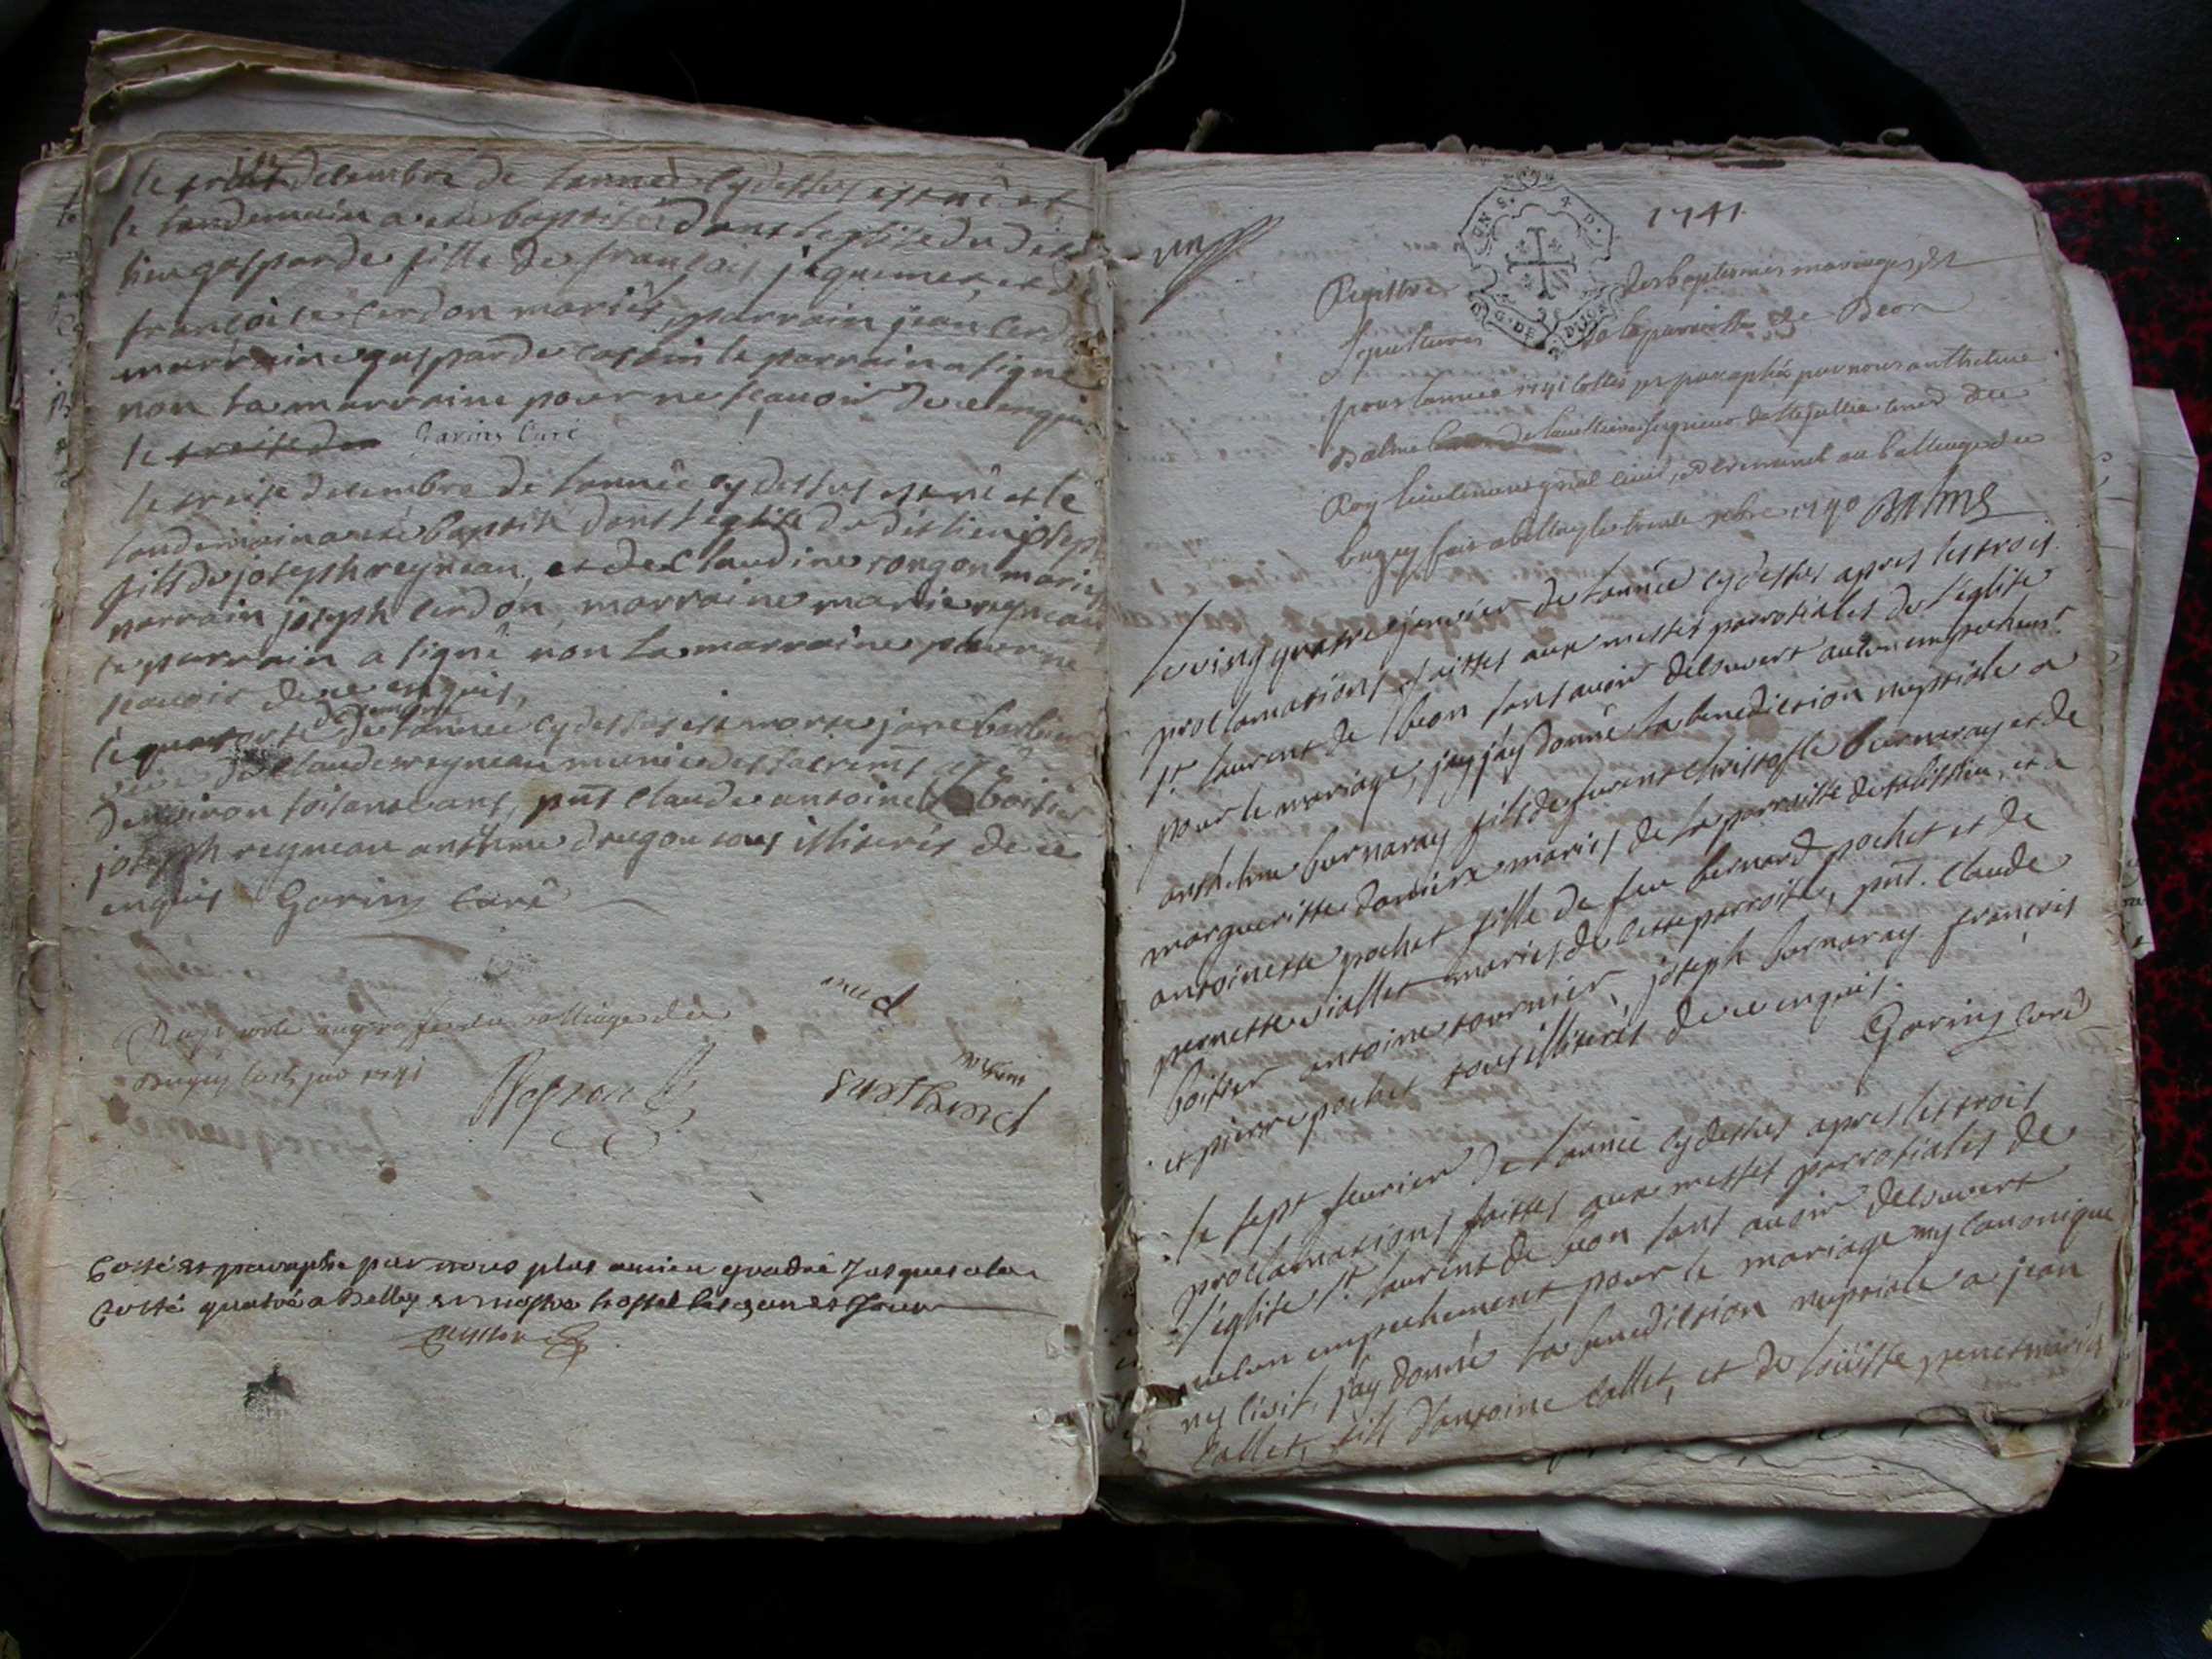 le decembre de l'année cy dessus est né et
le landemain a esté baptisée dans l'eglise du dict
lieu gasparde fille de françois jequemet, et de
françoise cerdon mariés, parrain jean cerdon
marraine gasparde le parrain a signé
non la marraine pour ne sçavoir de ce enquis
le treise de Garin curé
le treise decembre de l'année cy dessus est né et le
landemain a esté baptisé dans l'eglise du dict lieu joseph
fils de joseph reyneau, et de claudine rongon mariés
parrain joseph cerdon, marraine marie reyneau
le parrain a signé non la marraine pour ne
scavoir de ce enquis,
le quatorse decembre de l'année cy dessus est morte jane barbier
de claude reyneau munie des sacremts
d'environ soisante ans, pnt claude antoine boitier
joseph reyneau anthme dragon tous illiterés de ce
enquis Garin curé
au greffe du balliage du
Bugey 1741
Cotté et paraphé par nous plus ancien gradué Jusques a la
cotté quatre a Belley en nostre hostel les an et Jour
un
1741
GEN
Registre des baptesmes mariages et
sepultures de la paroisse de Beon
pour l'année 1741 cottés et paraphés par nous anthelme
Balme seigneur de Ste jullie cons.er du
Roy lieutenant gnal civil, et criminel au balliage du
bugey fait a belley le trente xbre 1740 Balme
le ving quatre janvier de l'année cy dessus apres les trois
proclamations faittes aux messes parrosiales de l'église
st laurent de beon sans avoir découvert aucun empechement
pour le mariage, j'ay donné la benediction nuptiale a
anthelme burnaray fils de furent christofle burnaray et de
margueritte mariés de la parroisse de talissieu, et a
antoinette pochet fille de feu bernard pochet et de
pernette viallet mariés de cette parroisse, pnt. claude
boitier antoine tournier, joseph burnaray françois
et pierre pochet tous illiterés de ce enquis.
Garin curé
le sept feurier de l'année cy dessus apres les trois
proclamations faittes aux messes parrosiales de
l'église st laurent de beon sans avoir découvert
aucun empechement pour le mariage ny canonique
ny civil, j'ay donné la benediction nuptiale a jean
callet, fils d'antoine callet, et de louisse mariés